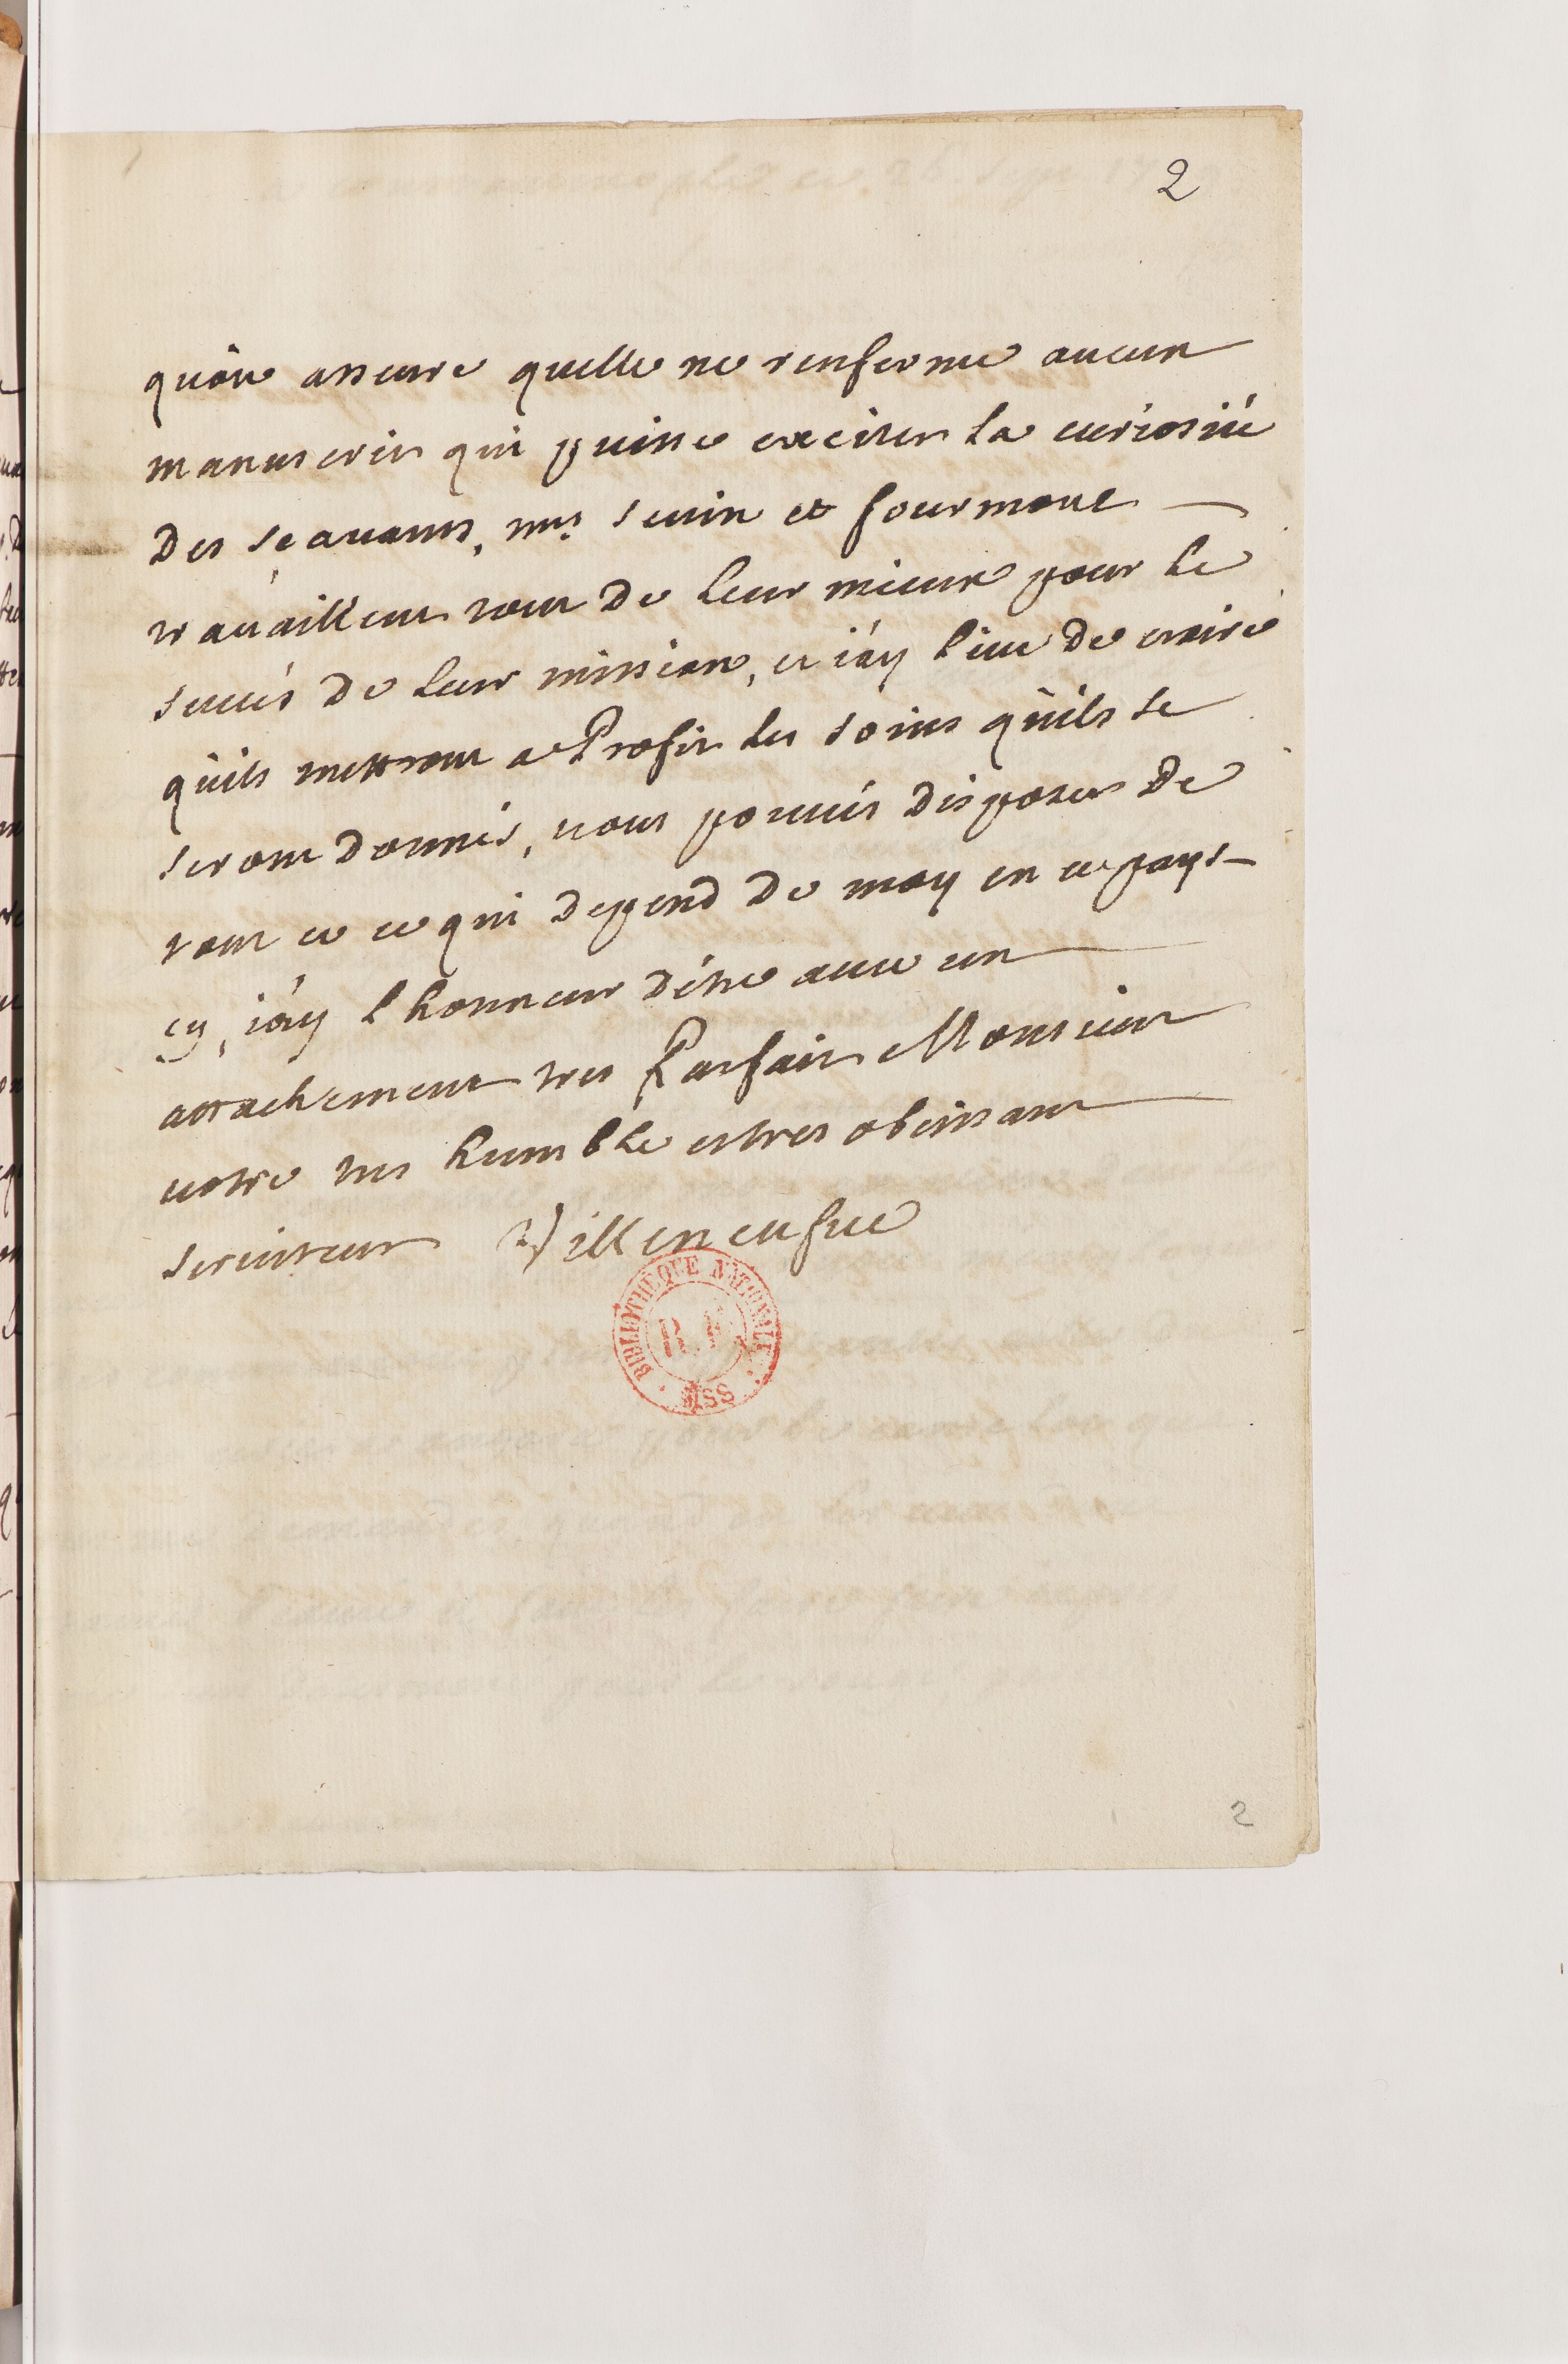 2
quon asseure quelle ne renferme aucun
manuscrit qui puisse exciter la curiosité
Des sçavants, mrs sevin et fourmont
travaillent tout De leur mieux pour le
succés De leur mission, et i'ay lieu De croire
qu'ils mettront a Profit les soins qu'ils se
seront Donnés, vous pouvés Disposer De
tout ce ce qui Depend De moy en ce pays
cy, i'ay l honneur D'être avec un
attachement tres Parfait Monsieur
votre tres humble et tres obeissant
serviteur Villeneufue
BIBLIOTHÈQUE NATIONALE
R.F.
MSS
2